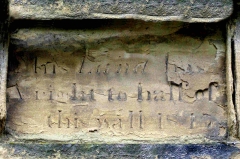 this Land has
A right to half of
this wall 18 17